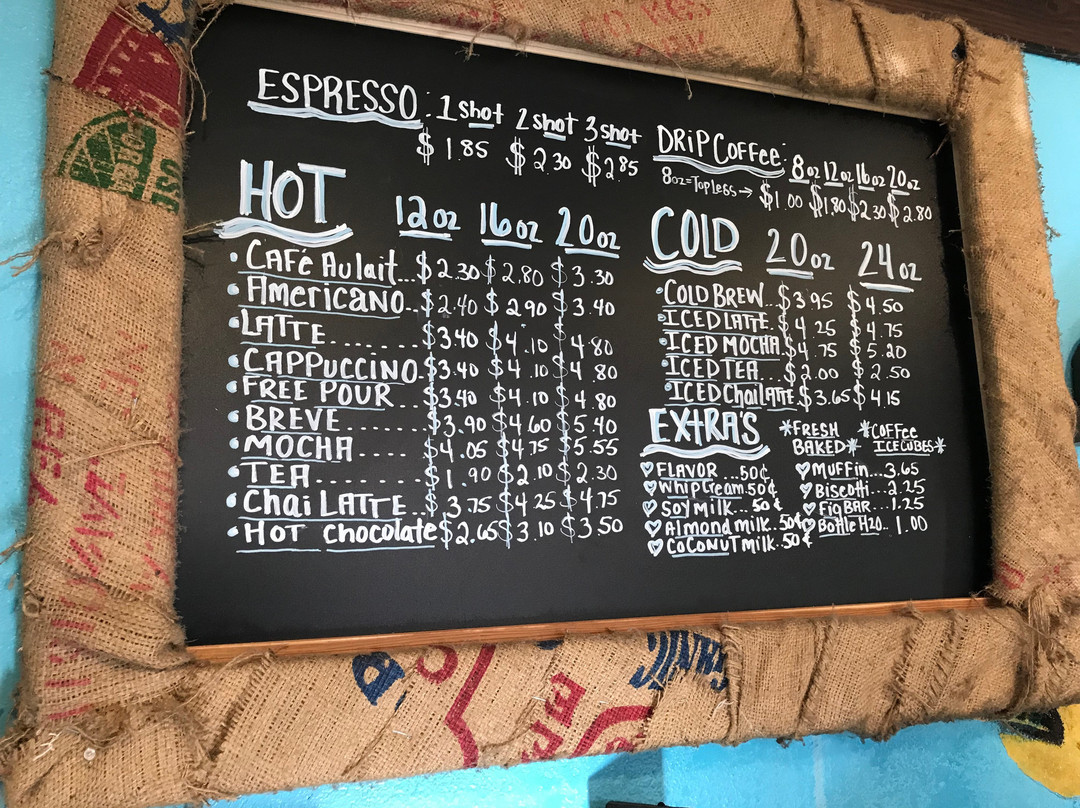 ESPRESSO: 1 shot 2 shot 3 shot
$1.85 $2.30 $2.85
DRiP COFFee: 8oz 12oz 16oz 20oz
8oz=Topless→ $1.00 $1.80 $2.30 $2.80
HOT 12oz 16oz 20oz
• CAFé Au lait...$2.30 $2.80 $3.30
• AMERICANO..$2.40 $2.90 $3.40
• LATTE.......$3.40 $4.10 $4.80
• CAPPUCCINO.$3.40 $4.10 $4.80
• FREE POUR...$3.40 $4.10 $4.80
• BREVE.......$3.90 $4.60 $5.40
• MOCHA.....$4.05 $4.75 $5.55
• TEA........$1.90 $2.10 $2.30
• Chai LATTE...$3.75 $4.25 $4.75
• HOT chocolate $2.65 $3.10 $3.50
COLD 20oz 24oz
• COLD BREW..$3.95 $4.50
• ICED LATTE..$4.25 $4.75
• ICED MOCHA.$4.75 $5.20
• ICED TEA...$2.00 $2.50
• ICED Chai LATTE.$3.65 $4.15
EXTRA'S
♡ FLAVOR...50¢
♡ Whip Cream.50¢
♡ SOY MILK...50¢
♡ Almond milk.50¢
♡ COCONUT MILK..50¢
*FRESH BAKED*
*COFFee ICE CUBES*
♡ MUFFin...3.65
♡ Biscotti...2.25
♡ Fig BAR...1.25
♡ Bottle H2O..1.00